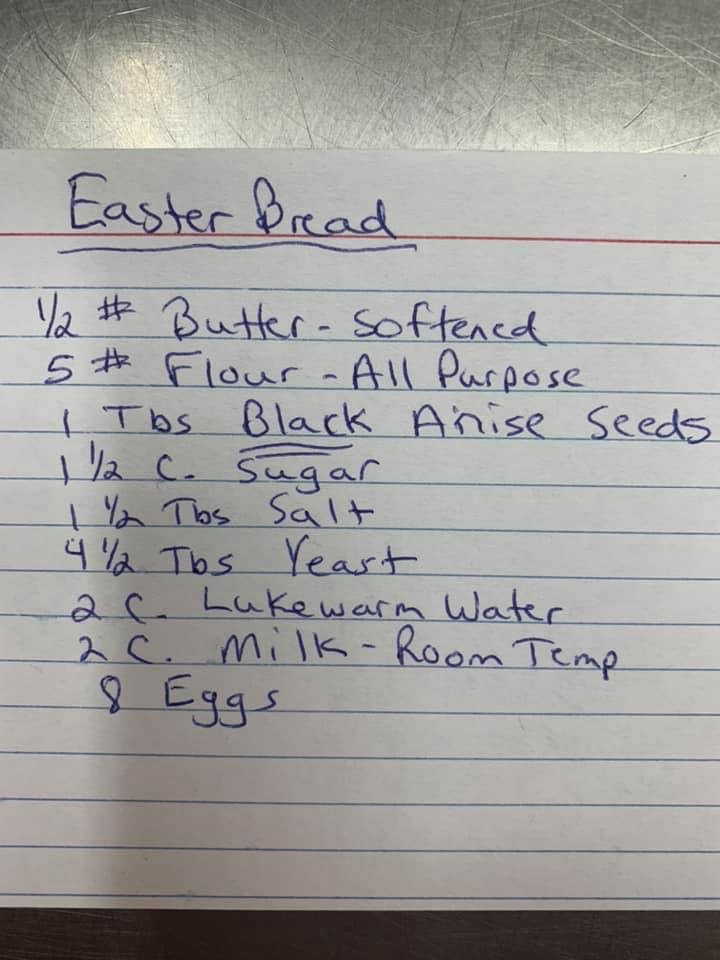 Easter Bread
1/2 # Butter - Softened
5 # Flour - All Purpose
1 Tbs Black Anise Seeds
1 1/2 C. Sugar
1 1/2 Tbs Salt
4 1/2 Tbs Yeast
2 C. Lukewarm Water
2 C. Milk - Room Temp
8 Eggs